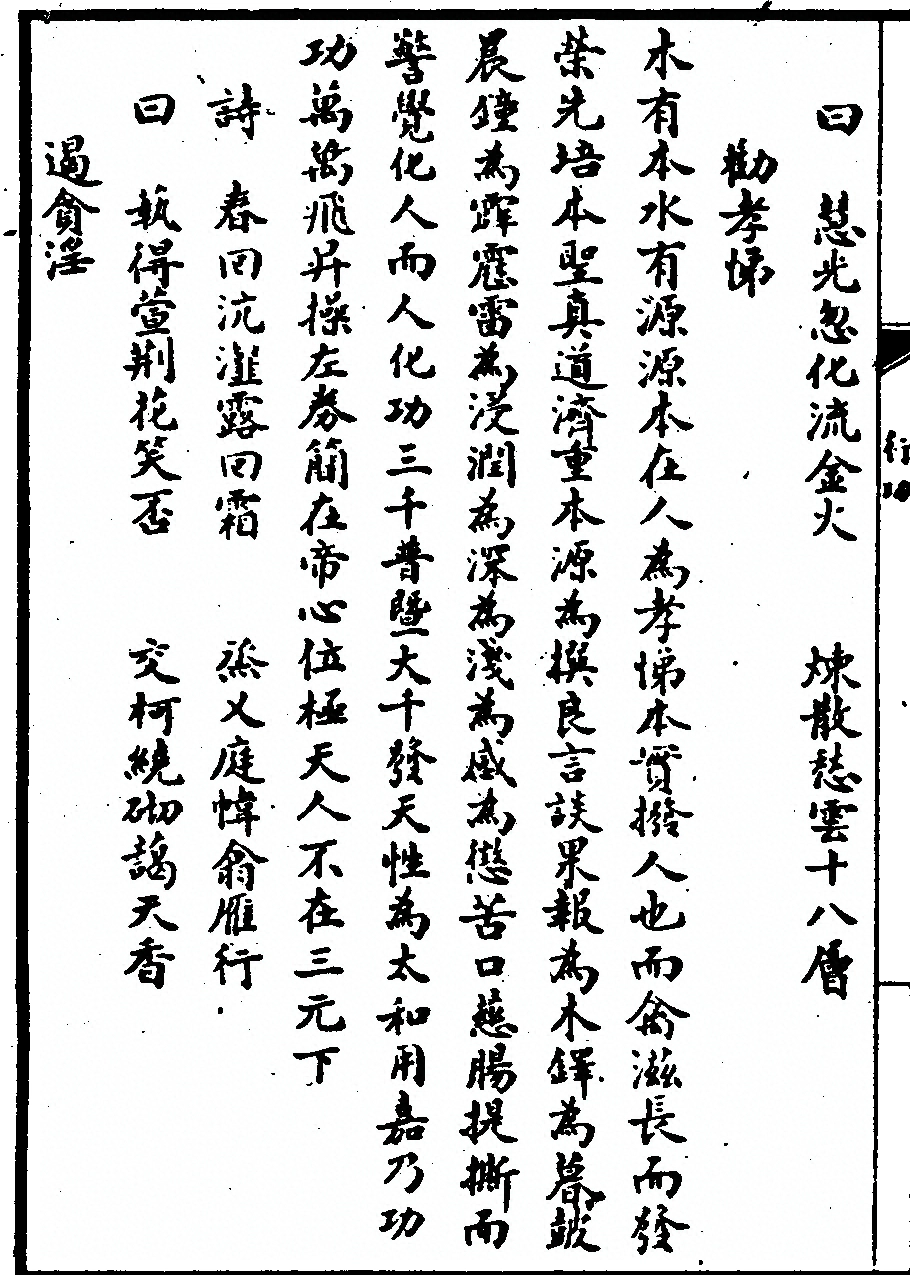 曰　慧光忽化流金火　煉散愁雲十八層
勸孝悌
木有本水有源源本在人為孝悌本實撥人也而禽滋長而發
榮先培本聖真道濟重本源為撰良言談果報為木鐸為暮鼓
晨鐘為霹靂雷為浸潤為深為淺為感為懲苦口慈腸提撕而
警覺化人而人化功三千普暨大千發天性為太和用嘉乃功
功萬萬飛昇操左券簡在帝心位極天人不在三元下
詩　春回沆瀣露回霜　烝乂庭幃翕雁行
曰　執得萱荆花笑否　交柯繞砌藹天香
遏貪淫
行